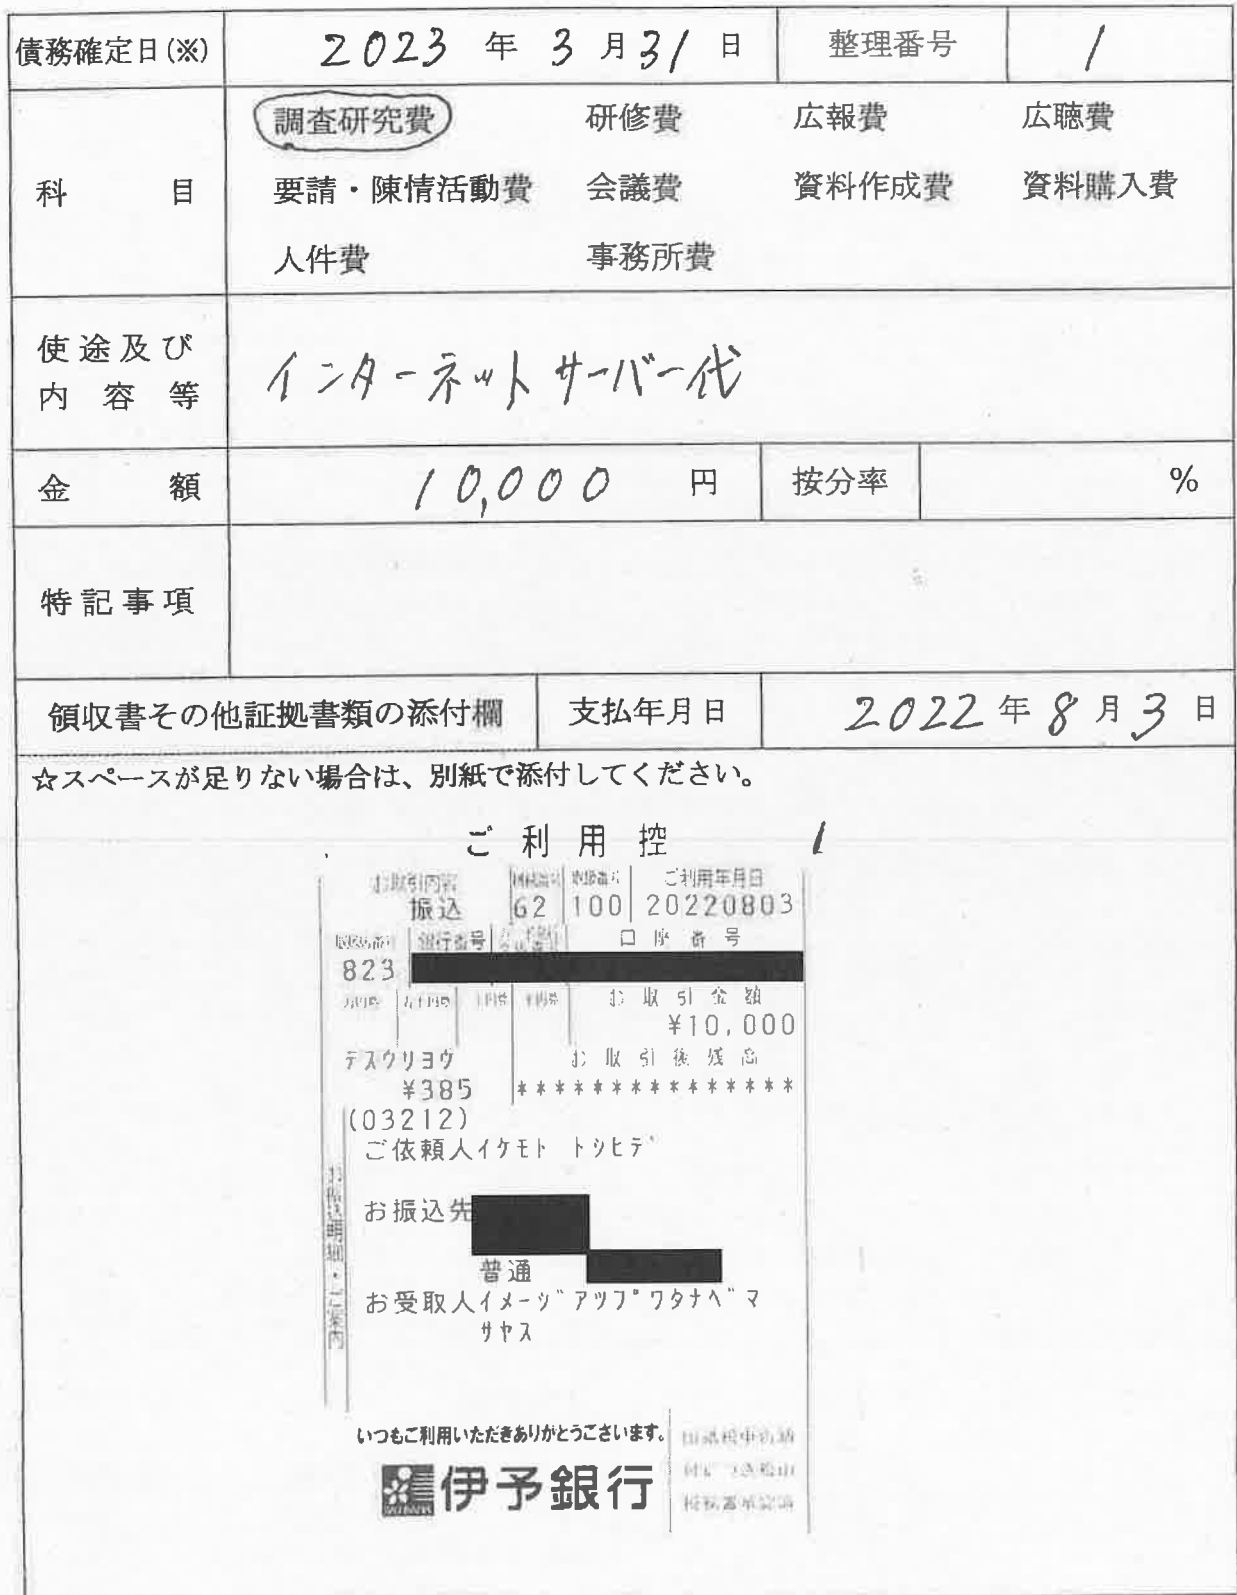 債務確定日(※) 2023 年 3 月 31 日 整理番号 1
調査研究費 研修費 広報費 広聴費
科 目 要請・陳情活動費 会議費 資料作成費 資料購入費
人件費 事務所費
使途及び
内容等
インターネットサーバー代
金 額 10,000 円 按分率 %
特記事項
領収書その他証拠書類の添付欄 支払年月日 2022 年 8 月 3 日
☆スペースが足りない場合は、別紙で添付してください。
ご利用控 1
お取引内容 機械番号 取扱番号 ご利用年月日
振込 62 100 20220803
銀行番号 口座番号
823
万円 千円 お取引金額
¥10,000
テスウリヨウ お取引後残高
¥385 ***************
(03212)
ご依頼人イケモト トシヒデ
お振込明細・ご案内
お振込先
普通
お受取人イメージアツプワタナベマ
サヤス
いつもご利用いただきありがとうございます。
伊予銀行